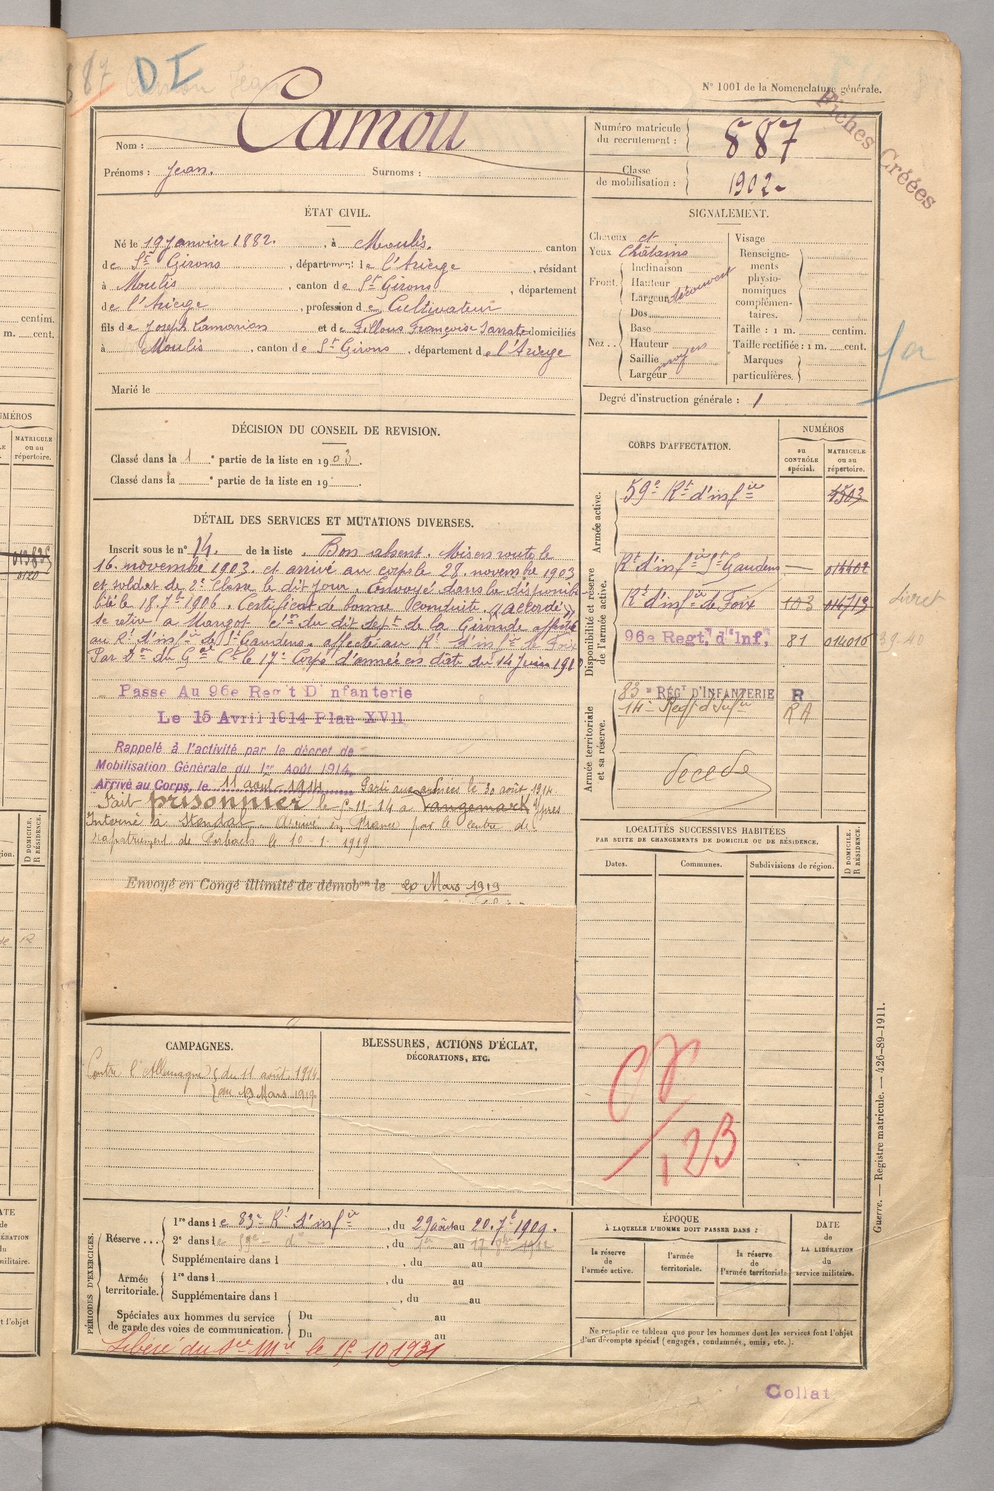 887 DI
Nº 1001 de la Nomenclature générale.
Fiches Créées
Nom : Camou
Prénoms : Jean. Surnoms :
Numéro matricule du recrutement : 887
Classe de mobilisation : 1902
ÉTAT CIVIL.
Né le 19 Janvier 1882. , à Moulis. canton
de St Girons , département de l'Ariège , résidant
à Moulis , canton de St Girons , département
de l'Ariège , profession de Cultivateur
fils de Joseph Camarien et de Fellous Françoise Sarrate domiciliés
à Moulis , canton de St Girons , département de l'Ariège
Marié le
SIGNALEMENT.
Cheveux et
Yeux Châtains
Front. Inclinaison
Hauteur
Largeur découvert
Nez.. Dos
Base
Hauteur
Saillie moyen
Largeur
Visage
Renseignements physionomiques complémentaires.
Taille : 1 m. centim.
Taille rectifiée : 1 m. cent.
Marques particulières.
Degré d'instruction générale : 1
DÉCISION DU CONSEIL DE REVISION.
Classé dans la 1 e partie de la liste en 1903.
Classé dans la e partie de la liste en 19 .
DÉTAIL DES SERVICES ET MUTATIONS DIVERSES.
Inscrit sous le nº 14. de la liste . Bon absent. Mis en route le
16 novembre 1903. et arrivé au corps le 28 novembre 1903
et soldat de 2e Classe le dit jour. Envoyé dans la disponibi
lité le 18.7bre 1906. Certificat de bonne Conduite "accordé"
se retire à Margot Con du dit dept de la Gironde affecté
au Rt d'infie de St Gaudens, affecté au Rt d'infie de Foix
Par Don du Gal Ct le 17e Corps d'armée en date du 14 Juin 1910
Passé Au 96e Regt D'Infanterie
Le 15 Avril 1914 Plan XVII
Rappelé à l'activité par le décret de
Mobilisation Générale du 1er Août 1914
Arrivé au Corps, le 11 août 1914 Parti aux armées le 30 août 1914
Fait prisonnier le 9-11-14 à Langemark Ypres
Interné à Stendal. Arrivé en France par le centre de
rapatriement de le 10-1-1919
Envoyé en Congé illimité de démobon le 20 Mars 1919
CORPS D'AFFECTATION.
NUMÉROS
au CONTRÔLE spécial.
MATRICULE ou au répertoire.
Armée active.
59e Rt d'infie 4503
Disponibilité et réserve de l'armée active.
Rt d'infie St Gaudens — 014402
Rt d'infie de Foix 103 014719
96e Regt, d'Inf, 81 014016
Armée territoriale et sa réserve.
83e RÉGt D'INFANTERIE R
14e RA
Décédé
LOCALITÉS SUCCESSIVES HABITÉES
PAR SUITE DE CHANGEMENTS DE DOMICILE OU DE RÉSIDENCE.
Dates. Communes. Subdivisions de région.
D DOMICILE.
R RÉSIDENCE.
CAMPAGNES.
Contre l'Allemagne du 11 août 1914
au 19 Mars 1919
BLESSURES, ACTIONS D'ÉCLAT,
DÉCORATIONS, ETC.
PÉRIODES D'EXERCICES.
Réserve... 1re dans le 83e Rt d'infie , du 29 août au 20.7bre 1909.
2e dans le , du au
Supplémentaire dans l , du au
Armée territoriale. 1re dans l , du au
Supplémentaire dans l , du au
Spéciales aux hommes du service de garde des voies de communication. Du au
Du au
Libéré du Sce Mre le 15 10 1931
ÉPOQUE
À LAQUELLE L'HOMME DOIT PASSER DANS :
la réserve de l'armée active.
l'armée territoriale.
la réserve de l'armée territoriale
DATE de LA LIBÉRATION du service militaire.
Ne remplir ce tableau que pour les hommes dont les services font l'objet
d'un décompte spécial (engagés, condamnés, omis, etc.).
Guerre. — Registre matricule. — 426-89-1911.
Livret
Collat